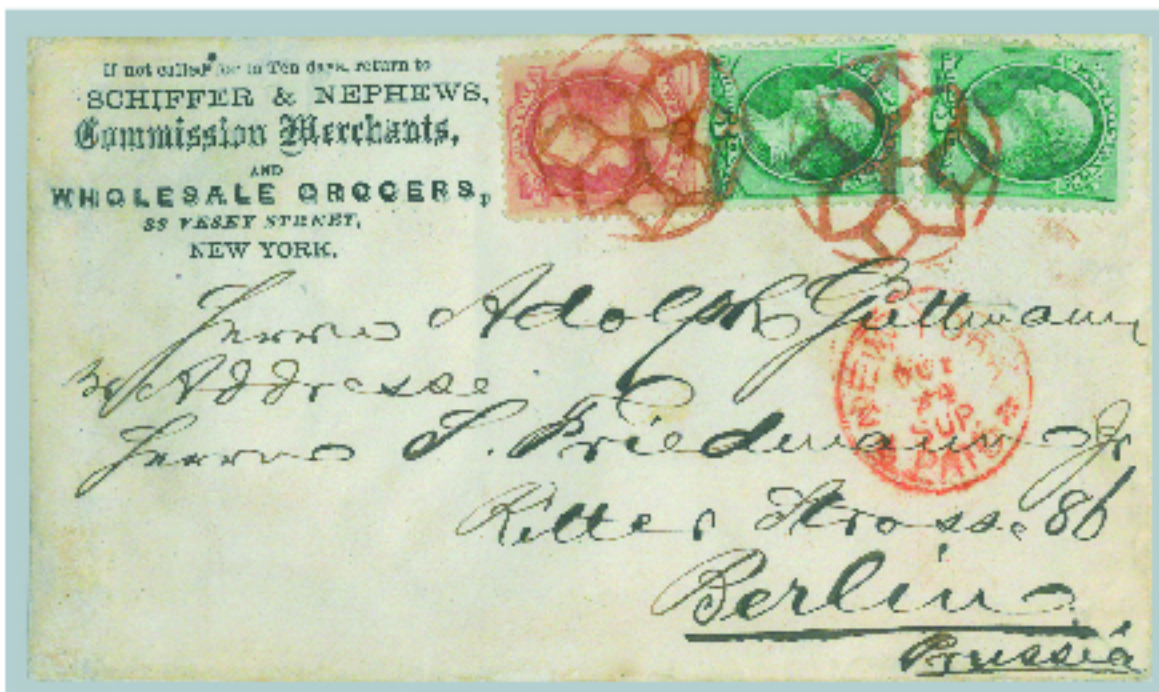 If not called for in Ten days, return to
SCHIFFER & NEPHEWS,
Commission Merchants,
AND
WHOLESALE GROCERS,
VESEY STREET,
NEW YORK.
NEW YORK
OCT
SUP
PAID
Herrn Adolph Guttmann
Addresse
Herrn S. Friedmann Jr
Ritter Strasse 86
Berlin
Prussia